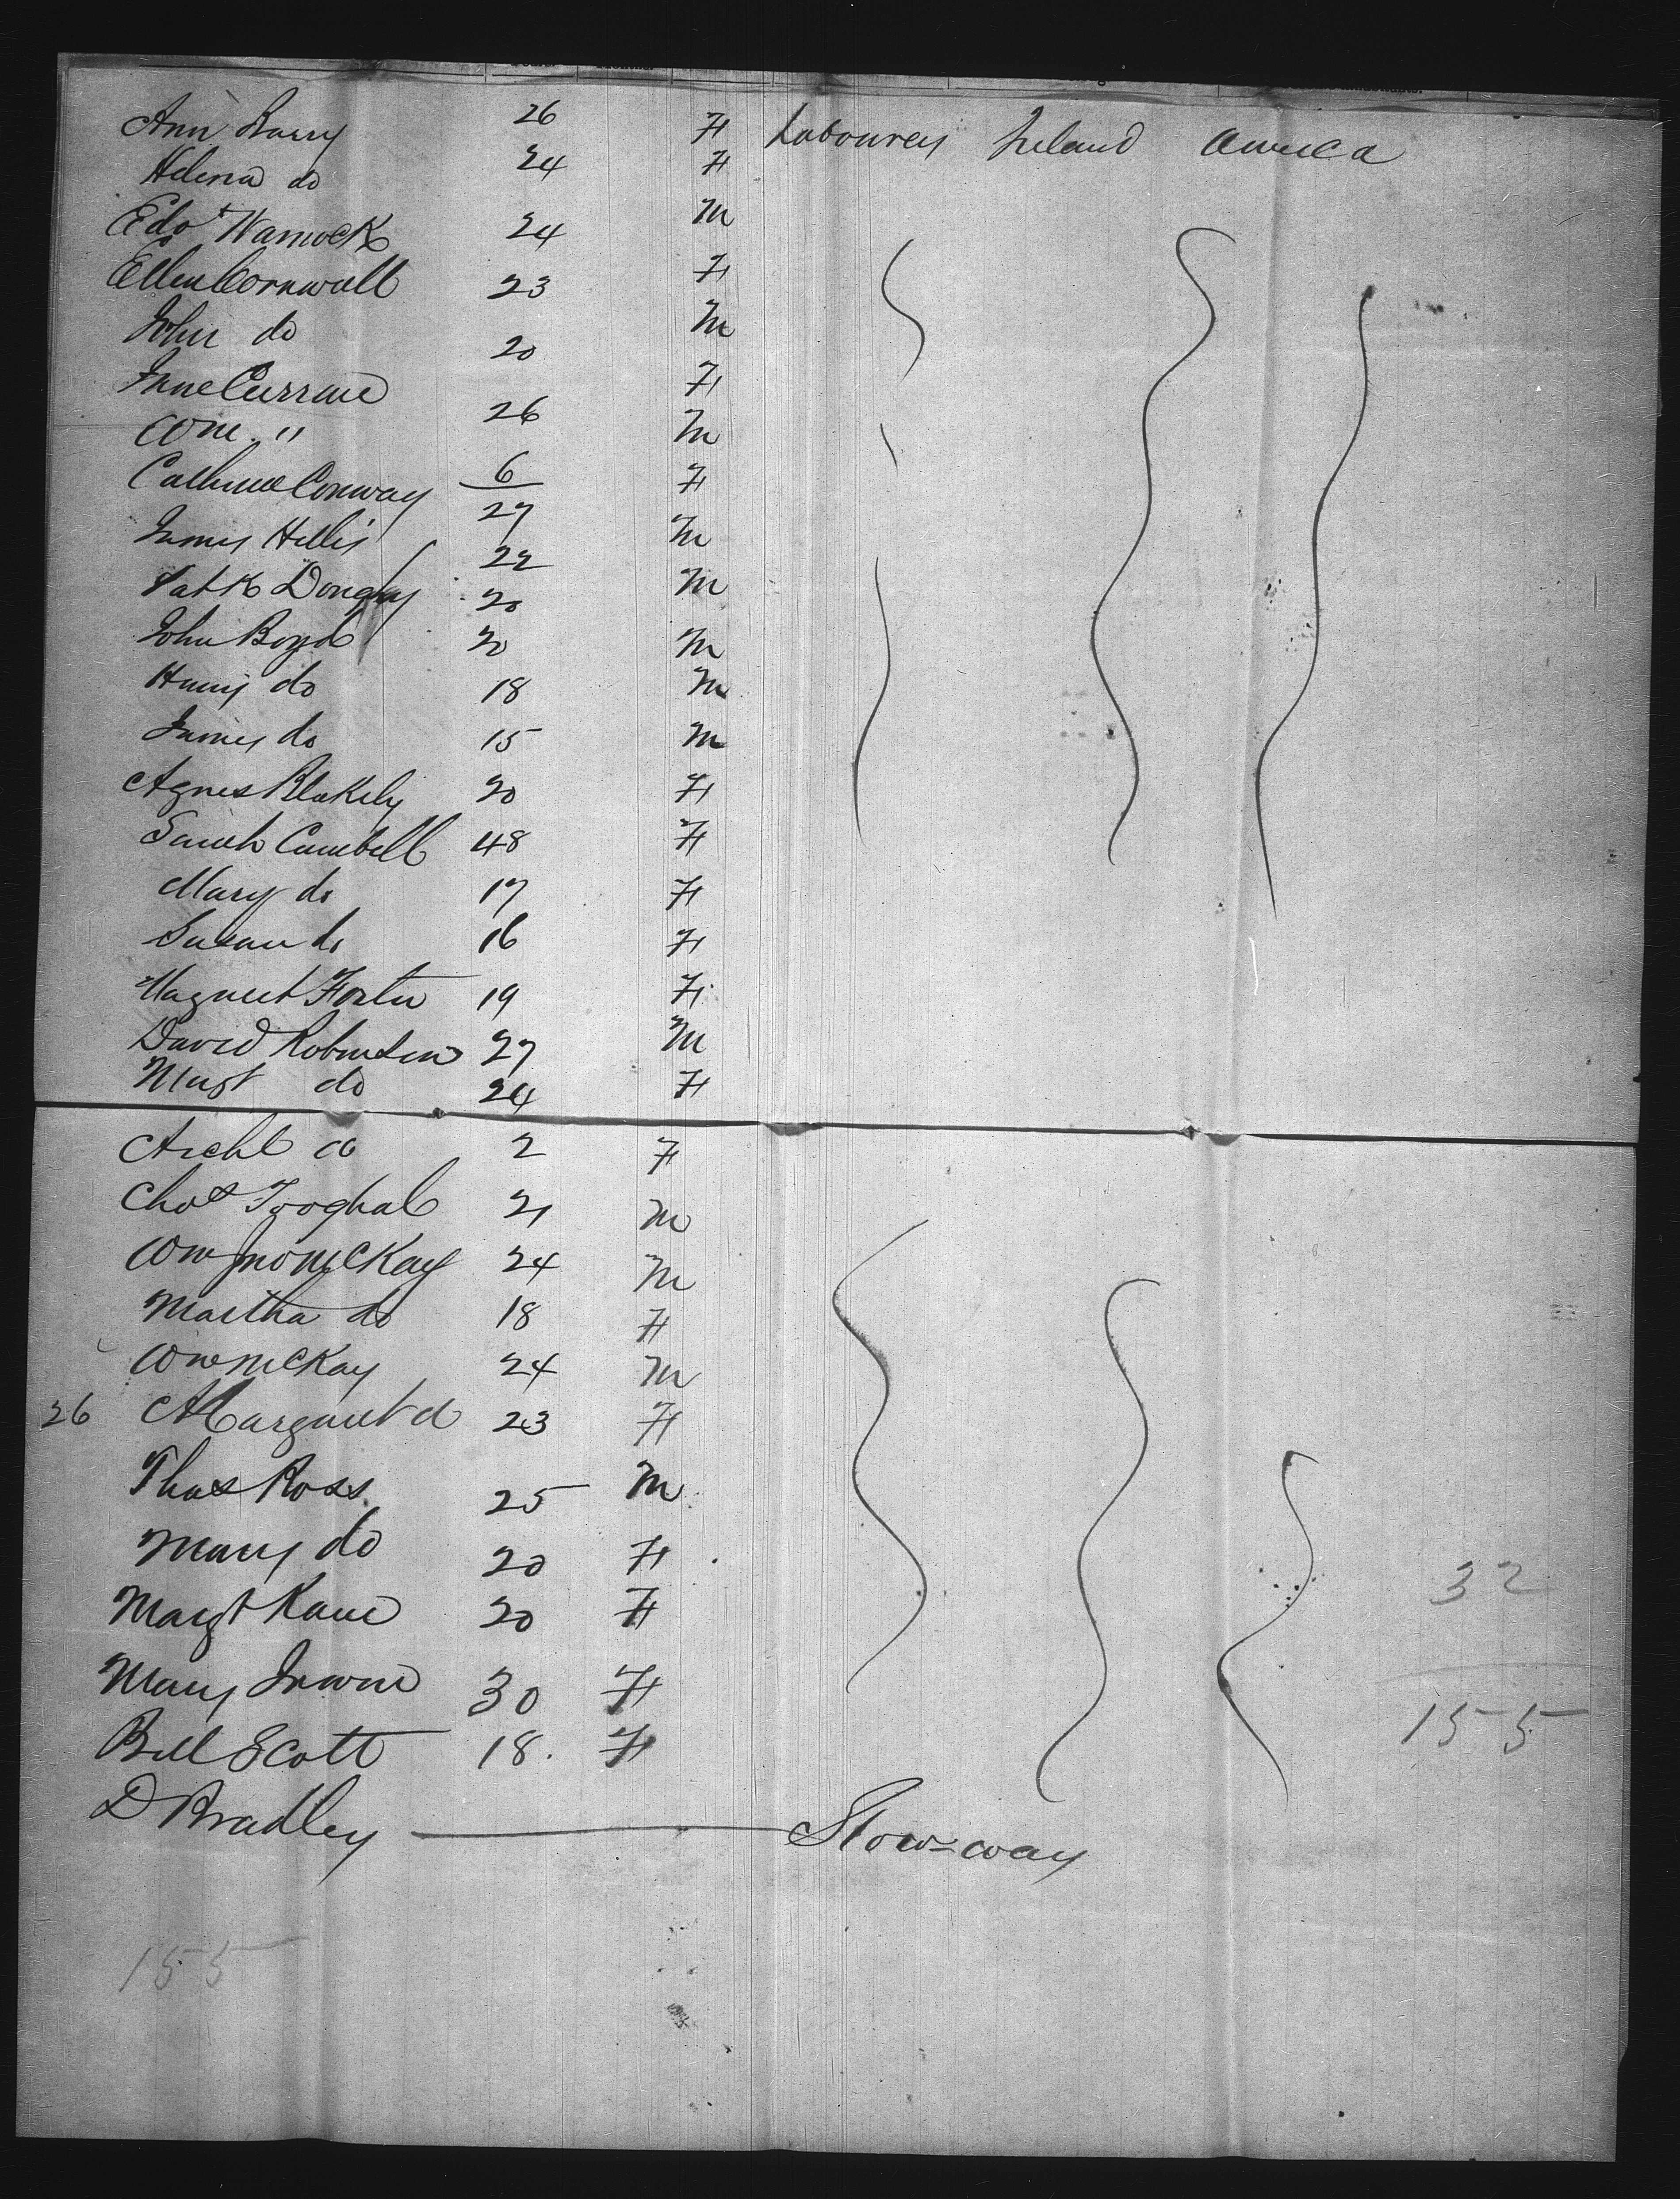 Ann Barry 26 F Labourers Ireland America
Helena do 24 F
Edwd Warnock 24 M
Ellen Cornwall 23 F
John do 20 M
Jane Currane 26 F
Wm. " 6 M
Catherine Conway 27 F
James Hillis 22 M
Patk Dongray 20 M
John Boyd 20 M
Henry do 18 M
James do 15 M
Agnes Blakely 20 F
Sarah Cambell 48 F
Mary do 17 F
Susan do 16 F
Margaret Foster 19 F
David Robinson 27 M
Margt do 24 F
Archd do 2 F
Chas 21 M
Wm Jno McKay 24 M
Martha do 18 F
Wm McKay 24 M
26 Margaret do 23 F
Thos Ross 25 M
Mary do 20 F
32
Margt Kane 20 F
Mary Irwine 30 F
155
Bell Scott 18. F
D Bradley Stow=way
155